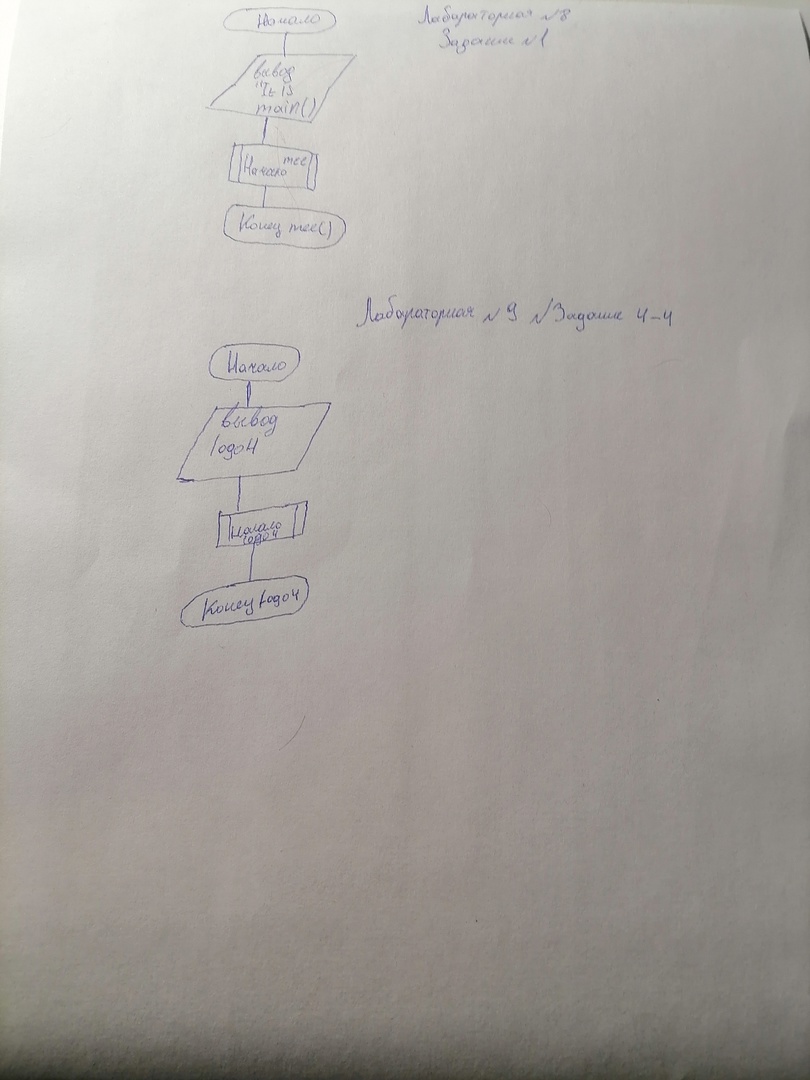 Начало
Лабораторная №8
Задание №1
вывод
"It is
main()
mec
Начало
Конец mec()
Лабораторная №9 №Задание 4-4
Начало
вывод
Начало
Конец